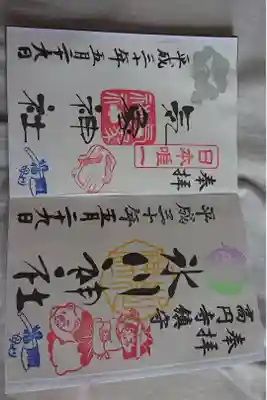 奉拝
日本唯一
気象神社
平成三十年五月二十九日
高円寺鎮守
奉拝
氷川神社
平成三十年五月二十九日